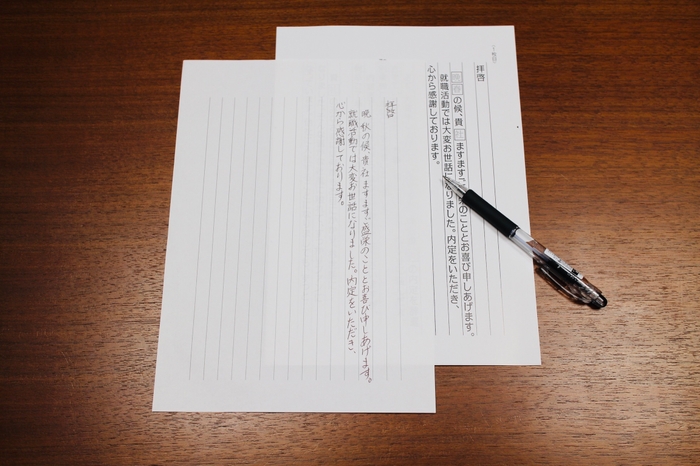 拝啓
の候、貴 ますます のこととお喜び申しあげます。
就職活動では大変お世話 りました。内定をいただき、
心から感謝しております。
拝啓
晩秋の候、貴社ますますご盛栄のこととお喜び申しあげます。
就職活動では大変お世話になりました。内定をいただき、
心から感謝しております。